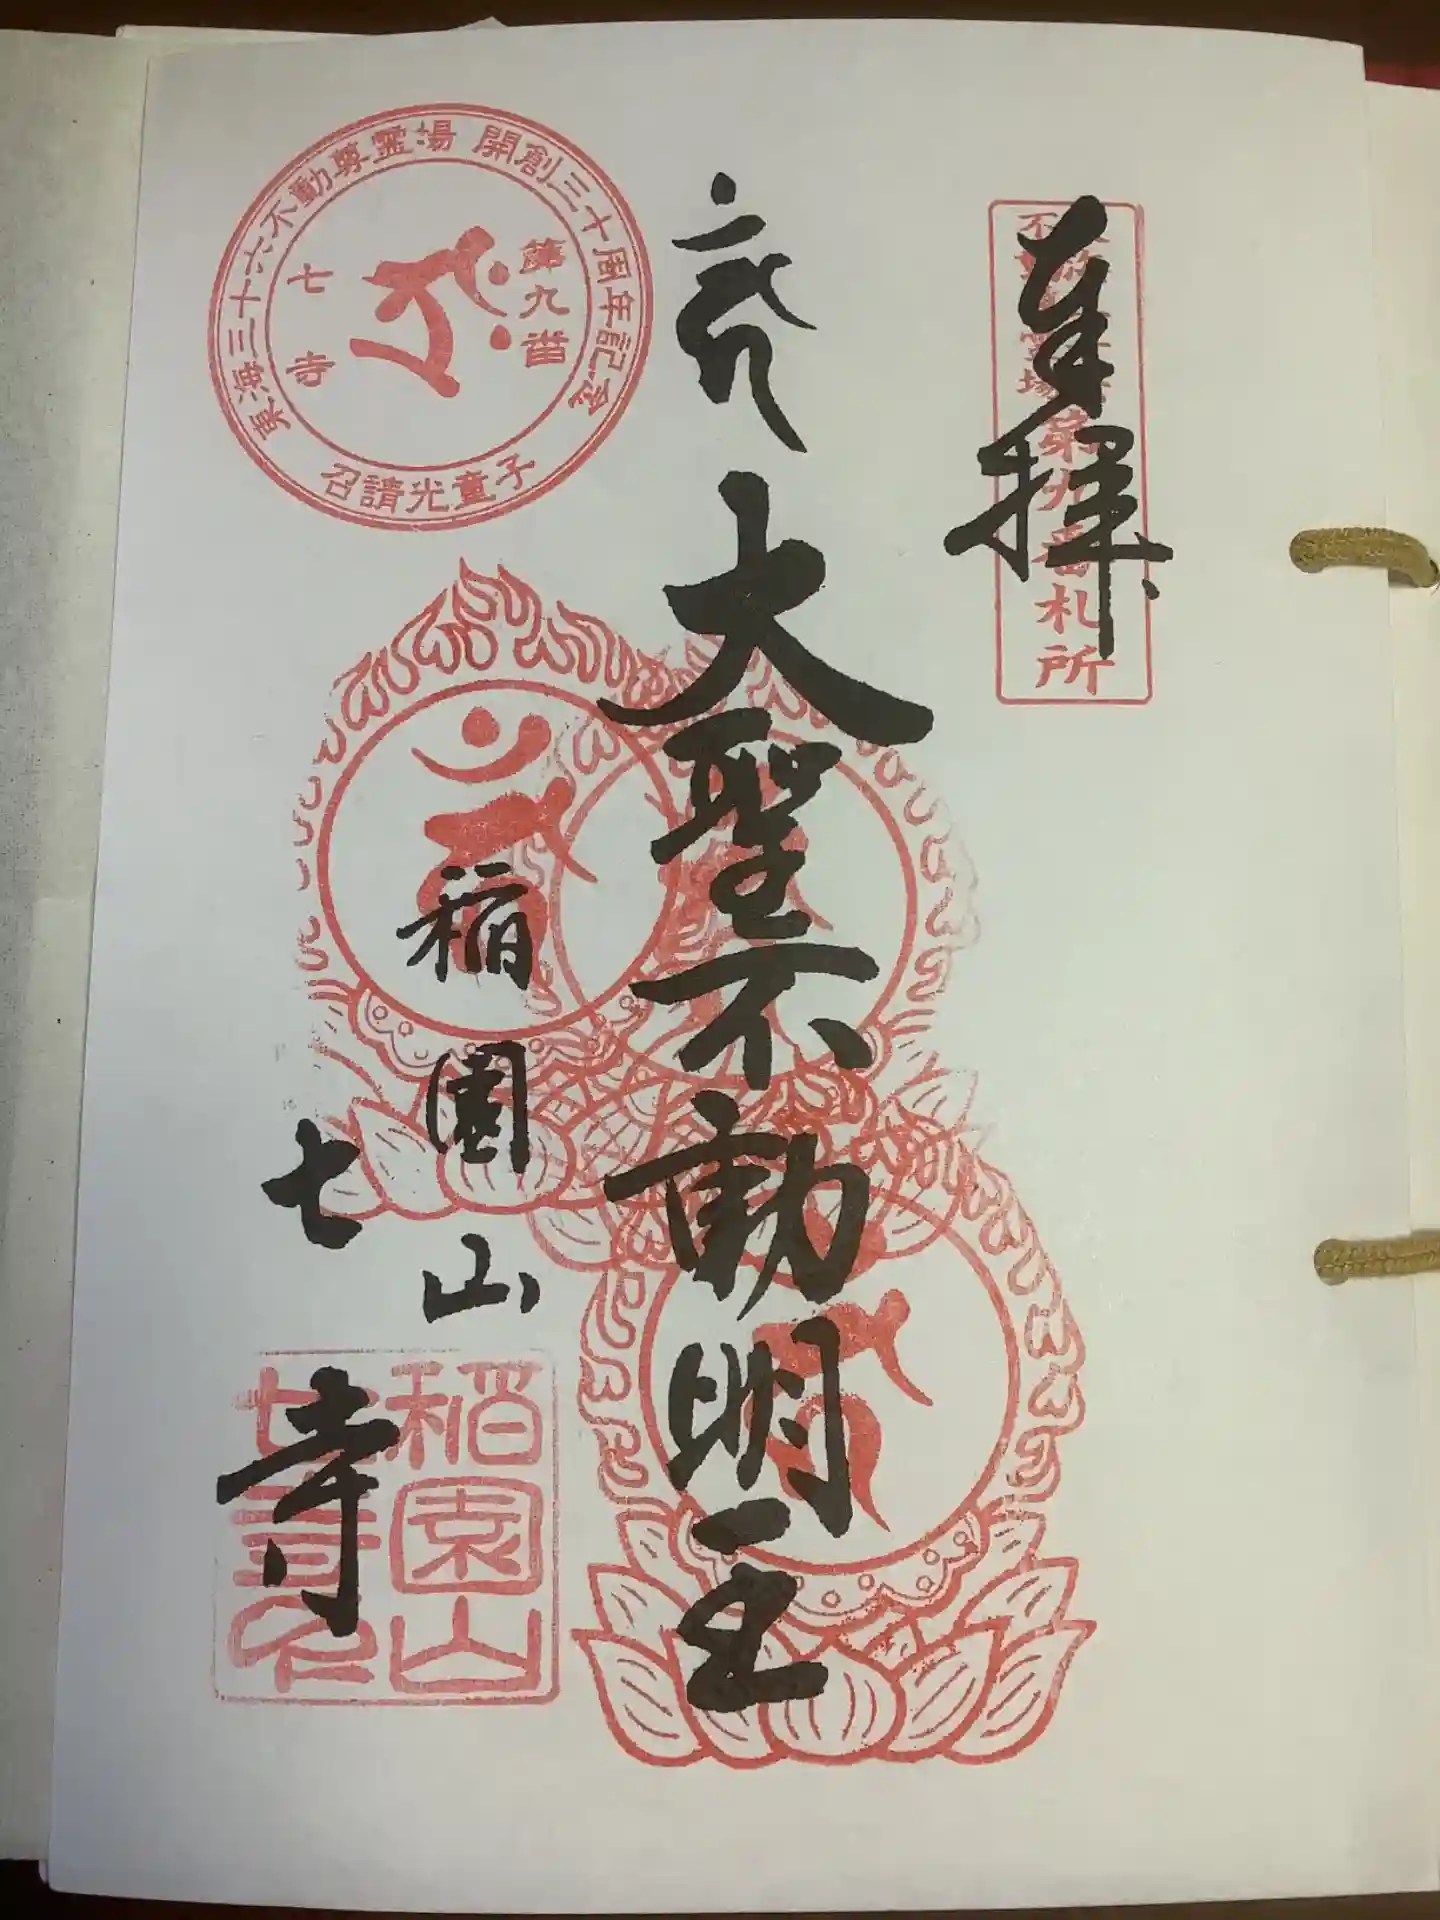 奉拝
第九番札所
大聖不動明王
稲園山
七寺
東海三十六不動尊霊場 開創三十周年記念
第九番
七寺
召請光童子
稲園山